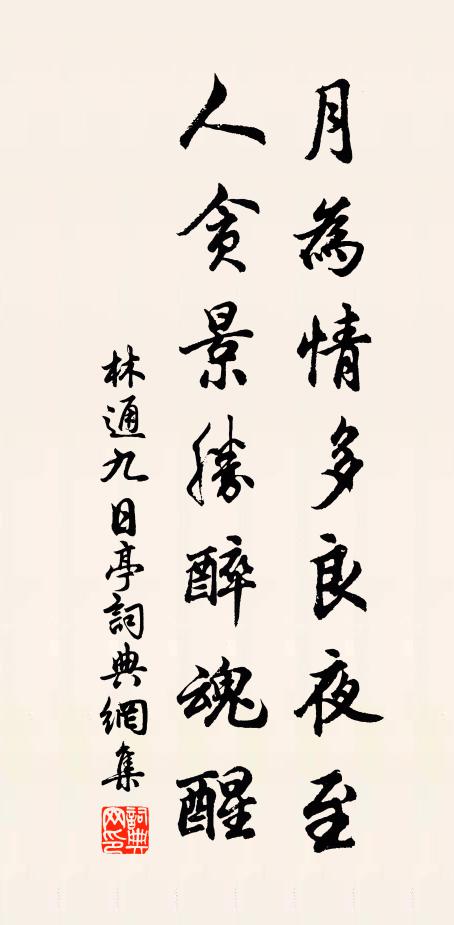 月為情多良夜至
人貪景勝醉魂醒
林通九日亭詞典網集
詞典網印